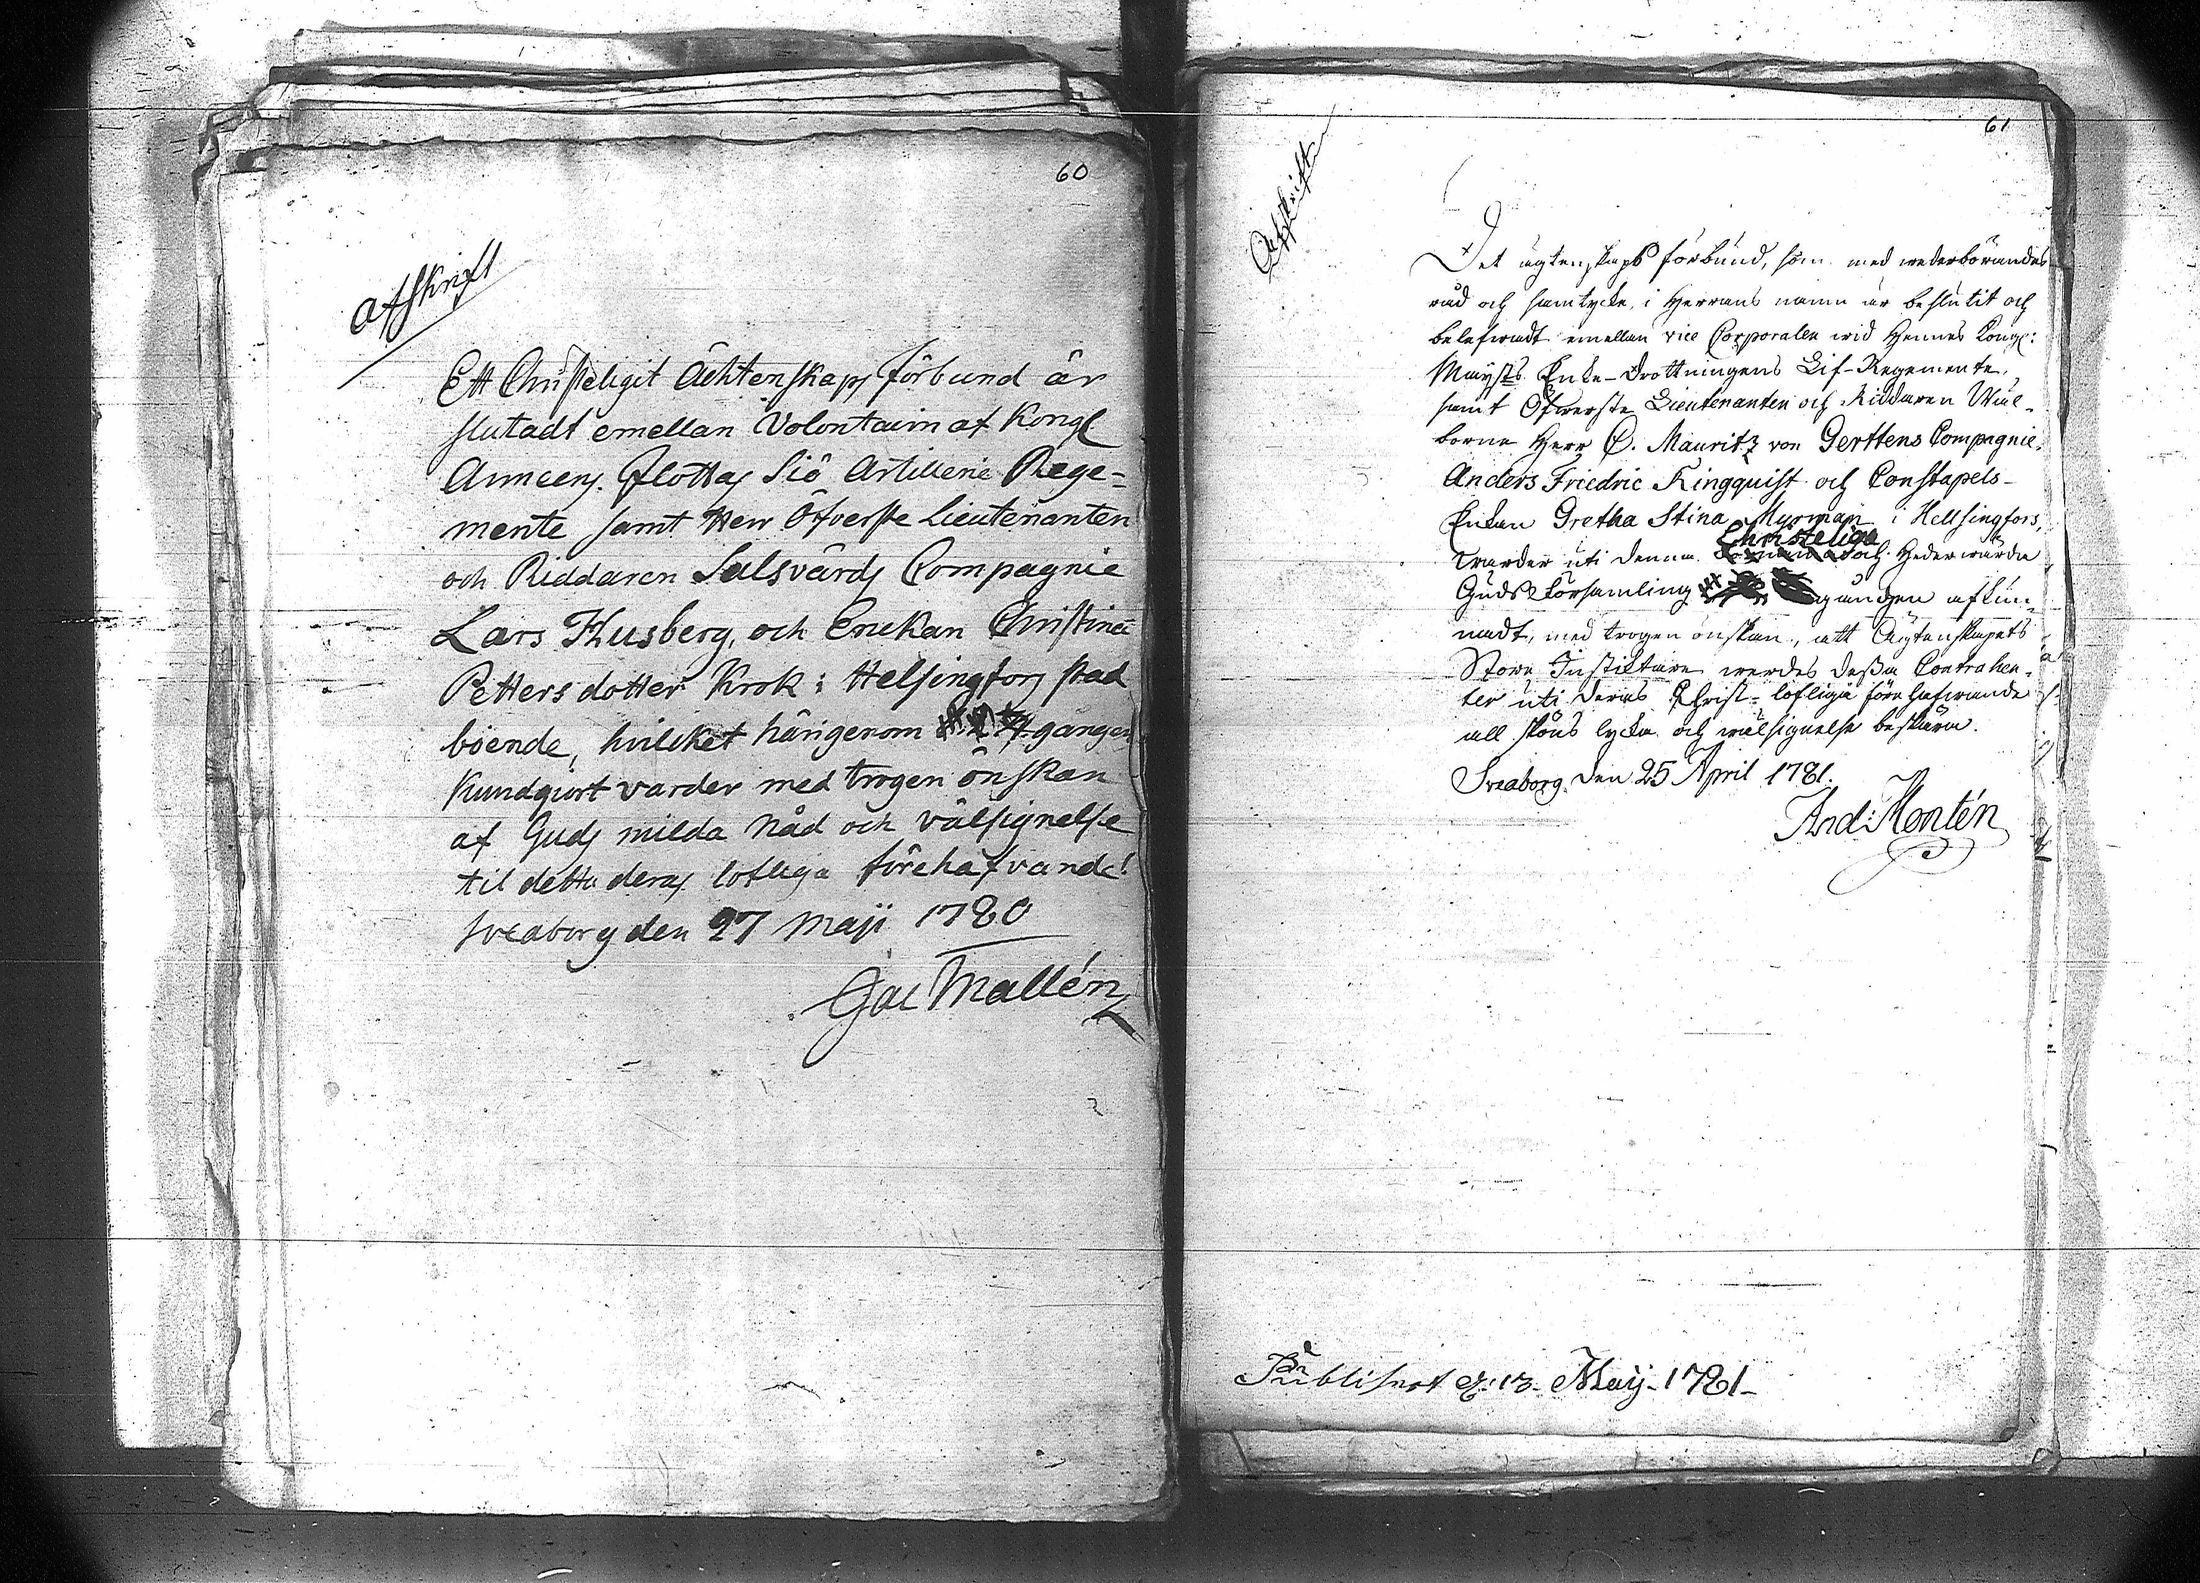 60
Afskrift
Ett Christeligit Ächtenskaps förbund är
slutadt emellan Volontairn af Kongl
Armeens Flottas Siö Artillerie Rege=
mente samt Herr Öfverste Lieutenanten
och Riddaren Salsvärds Compagnie
Lars Husberg, och Enckan Christina
Petters dotter Krok i Helsingfors stad
boende, hvilcket härigenom gången
Kundgiort varder med trogen önskan
af Guds milda Nåd och välsignelse
til detta deras lofliga förehafvande!
Sveaborg den 27 Maji 1780
Gac Mallén
61
Afskrift
Det ägtenskaps förbund, som med wederbörandes
råd och samtycke i Herrans namn är beslutit och
belefwadt emellan vice Corporalen wid Hennes Kongl:
Mayts Enke-Drottningens Lif-Regemente,
samt Öfwerste Lieutenanten och Riddaren Wäl-
borne Herr C. Mauritz von Gerttens Compagnie,
Anders Friedric Ringquist och Constapels-
Enkan Gretha Stina Myrman i Hellsingfors,
warder uti denna Christeliga och Hedervärda
Guds Församling gången afkun-
nadt, med trogen önskan, att Ägtenskapets
Store Instiktare werdes dessa Contrahen-
ter uti deras Christ-lofliga förehafwande
all sköns lycka och wälsignelse beskära.
Sveaborg den 25 April 1781.
And: Montén
Publiserat d: 13 Maij 1781